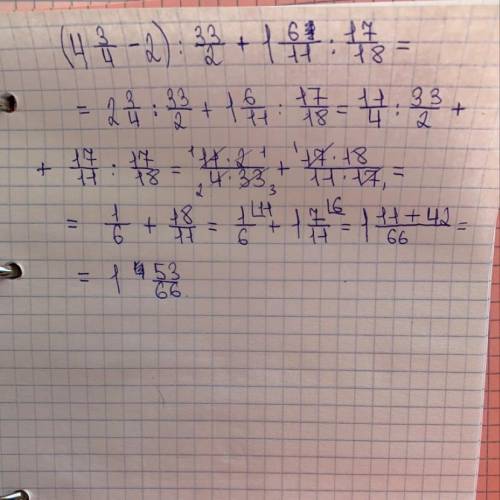 (4 3/4 - 2) : 33/2 + 1 6/11 : 17/18 =
= 2 3/4 : 33/2 + 1 6/11 : 17/18 = 11/4 : 33/2 +
+ 17/11 : 17/18 = 11·2/4·33 + 17·18/11·17 =
= 1/6 + 18/11 = 1/6 + 1 7/11 = 1 11+42/66 =
= 1 53/66